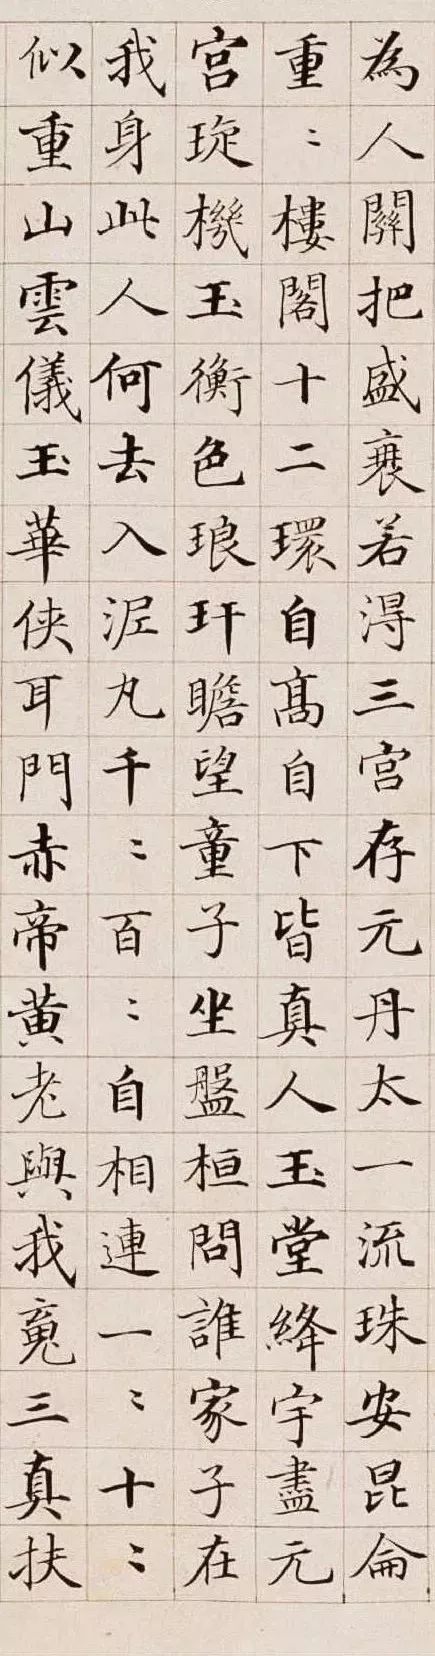 為人關把盛衰若淂三宫存元丹太一流珠安昆侖
重〻樓閣十二環自髙自下皆真人玉堂絳宇盡元
宫琁機玉衡色琅玕瞻望童子坐盤桓問誰家子在
我身此人何去入泥丸千〻百〻自相連一〻十〻
似重山雲儀玉華俠耳門赤帝黃老與我䰟三真扶